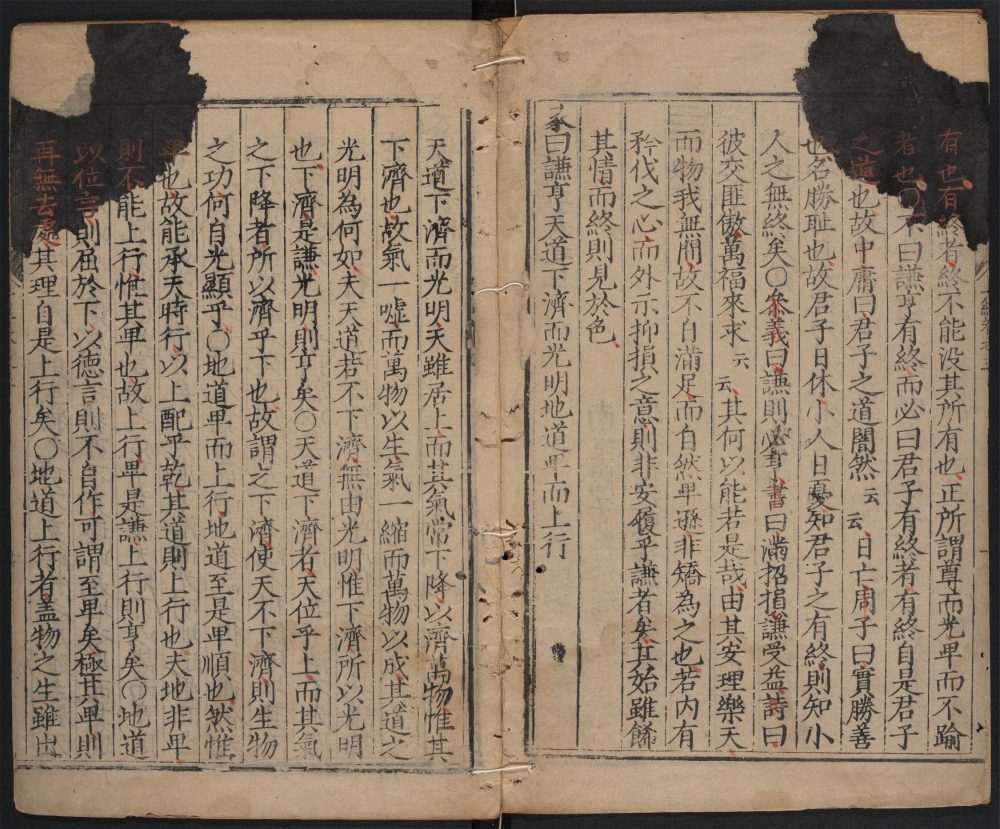 有也有終者終不能没其所有也正所謂尊而光卑而不踰
者也〇不曰謙亨有終而必曰君子有終者有終自是君子
之道也故中庸曰君子之道闇然云云日亡周子曰實勝善
也名勝耻也故君子日休小人日憂知君子之有終則知小
人之無終矣〇叅義曰謙則必書曰滿招損謙受益詩曰
彼交匪傲萬福來求云云其何以能若是哉由其安理樂天
而物我無間故不自滿足而自然卑遜非矯為之也若内有
矜伐之心而外示抑損之意則非安履乎謙者矣其始雖餙
其情而終則見於色
彖曰謙亨天道下濟而光明地道卑而上行
天道下濟而光明天雖居上而其氣常下降以濟萬物惟其
下濟也故氣一噓而萬物以生氣一縮而萬物以成其道之
光明為何如夫天道若不下濟無由光明惟下濟所以光明
也下濟是謙光明則亨矣〇天道下濟者天位乎上而其氣
之下降者所以濟乎下也故謂之下濟使天不下濟則生物
之功何自光顯乎〇地道卑而上行地道至是卑順也然惟
卑也故能承天時行以上配乎乾其道則上行也夫地非卑
則不能上行惟其卑也故上行卑是謙上行則亨矣〇地道
以位言則在於下以德言則不自作可謂至卑矣極其卑則
再無去處其理自是上行矣〇地道上行者盖物之生雖出